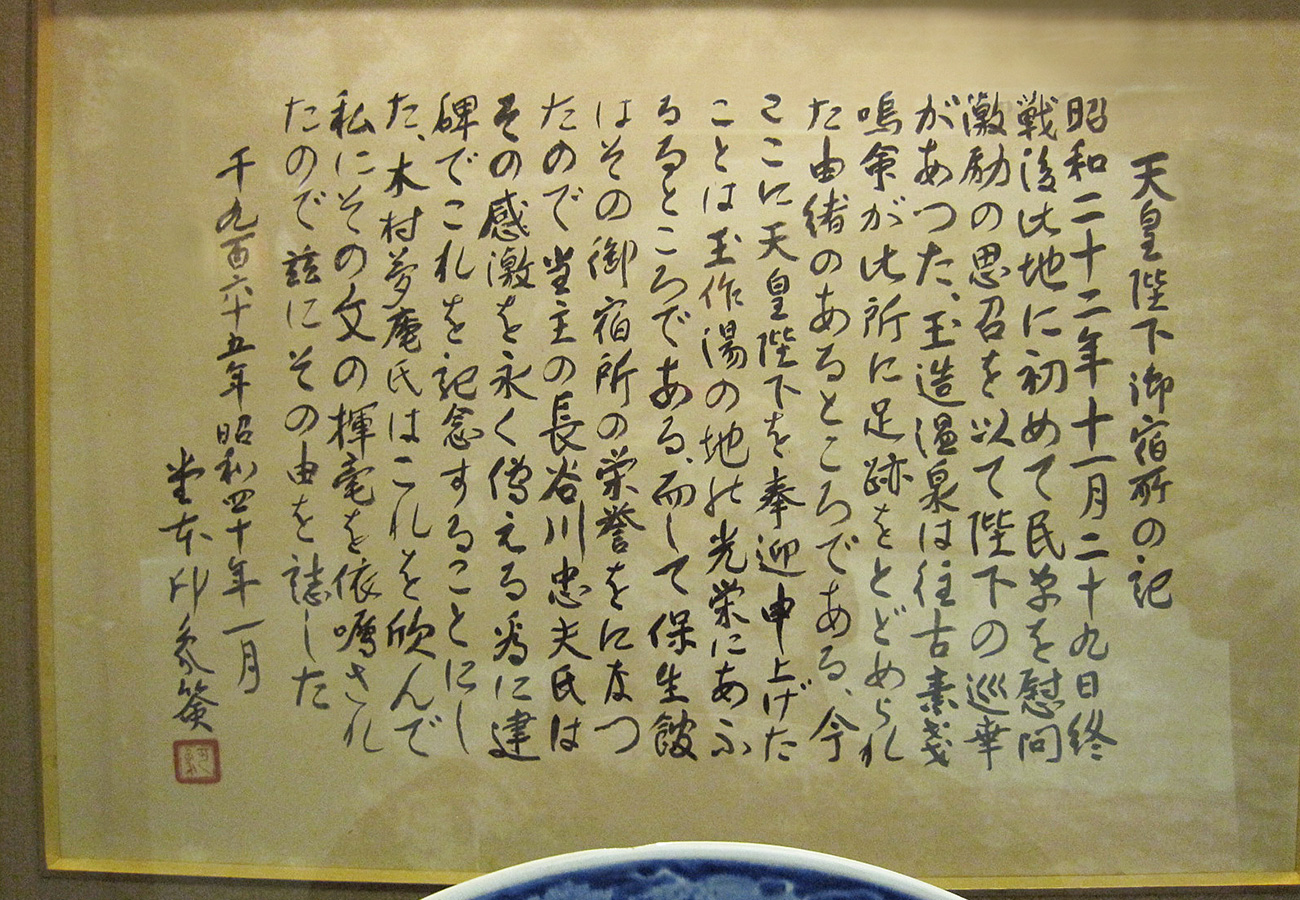 天皇陛下御宿所の記
昭和二十二年十一月二十九日終
戦後此地に初めて民草を慰問
激励の思召を以て陛下の巡幸
があつた、玉造温泉は往古素戔
鳴命が此所に足跡をとどめられ
た由緒のあるところである、今
ここに天皇陛下を奉迎申上げた
ことは玉作湯の地の光栄にあふ
るるところである、而して保生館
はその御宿所の栄誉をになつ
たので堂主の長谷川忠夫氏は
その感激を永く傳える為に建
碑でこれを記念することにし
た、木村夢庵氏はこれを欣んで
私にその文の揮毫を依嘱され
たので茲にその由を誌した
千九百六十五年昭和四十年一月
堂本印象